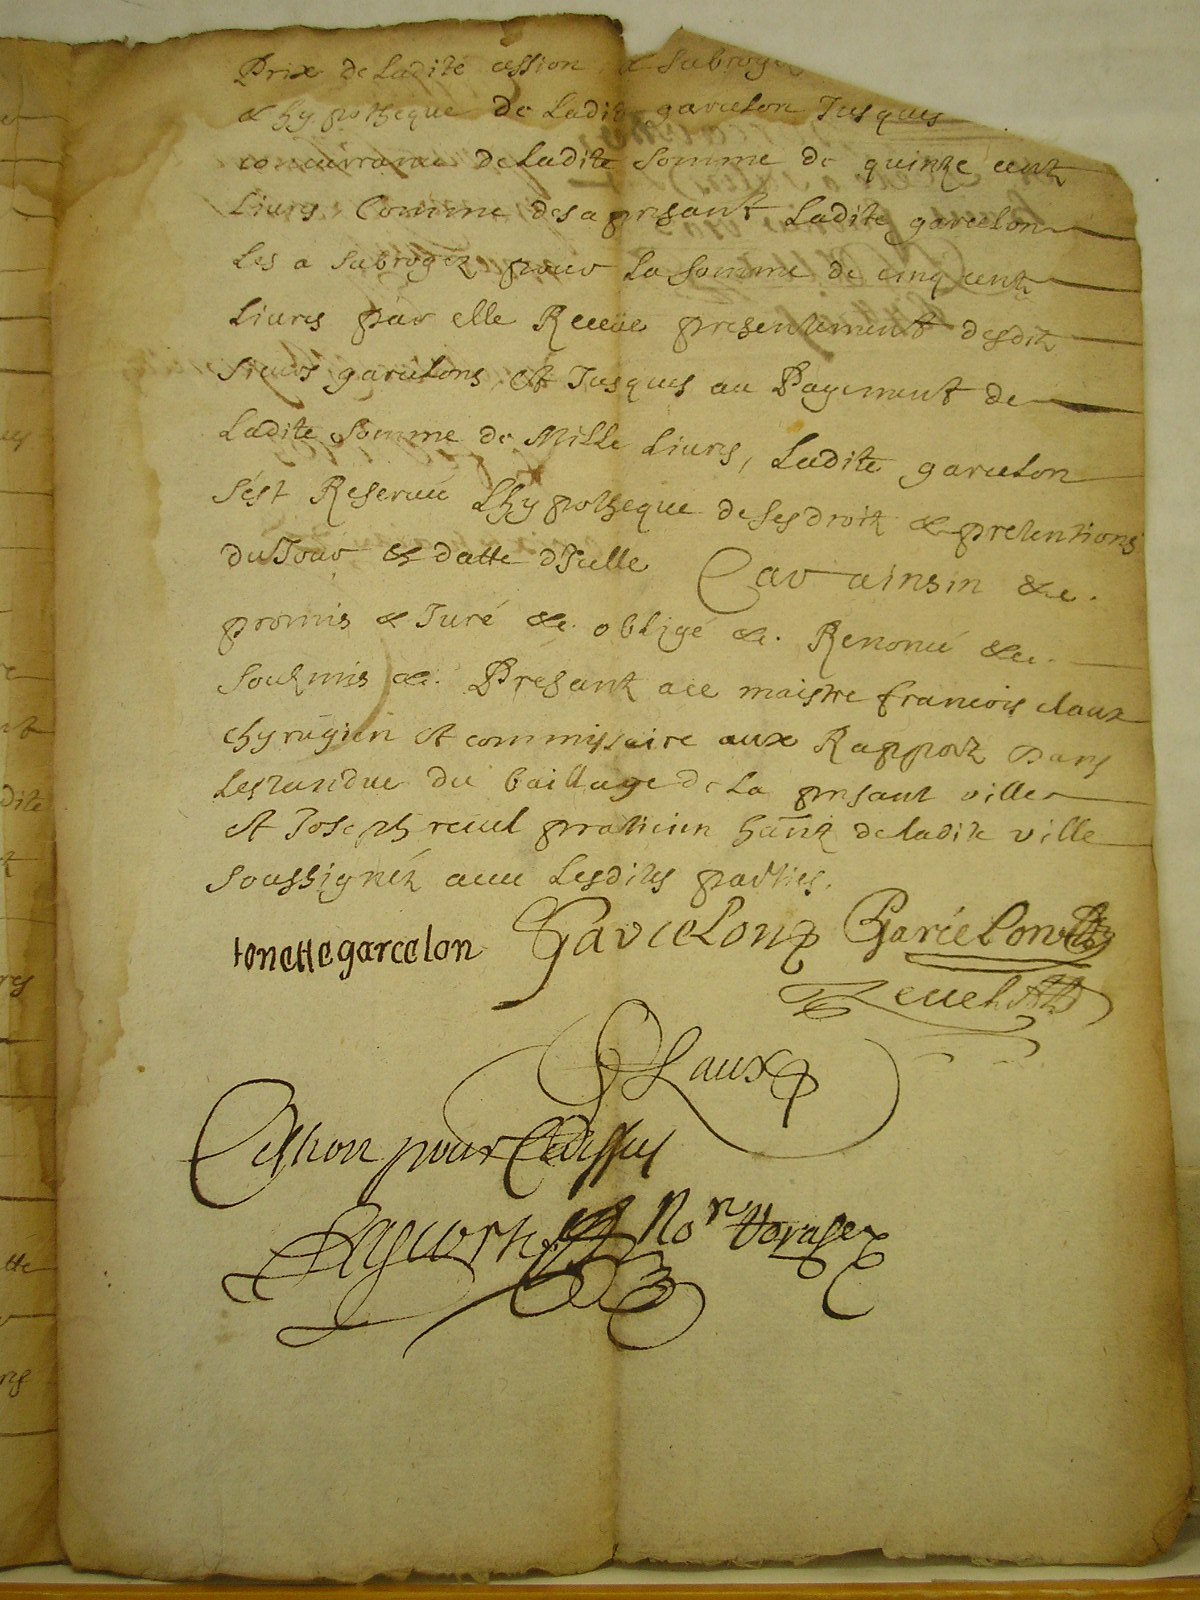 Prix de Ladite cession & subrogez
& hypotheque de Ladite garcelon Jusques
concurranse de Ladite somme de quinze centz
Liures Comme des a presant Ladite garcelon
Les a subrogéz pour La somme de cinq centz
Liures par elle Receüe presentement desditz
sieurs garcelons, et Jusques au Payement de
Ladite somme de Mille Liures, Ladite garcelon
s'est Reseruée L'hypotheque de ses droitz & pretentions
du Jour & datte d'Icelle Car ainsin &c.
promis & Juré &c. obligé &c. Renoncé &c.
soubmis &c. Presantz a ce maistre francois claux
chyrugien et commissaire aux Rapportz dans
Lestandue du baillage de La presant ville
et Joseph reuel praticien hantz de ladite ville
soussignéz auec Lesdites parties.
tonette garcelon Garcelon Garcelon
Reuel
Claux
Cession pour Cedessus
No.re